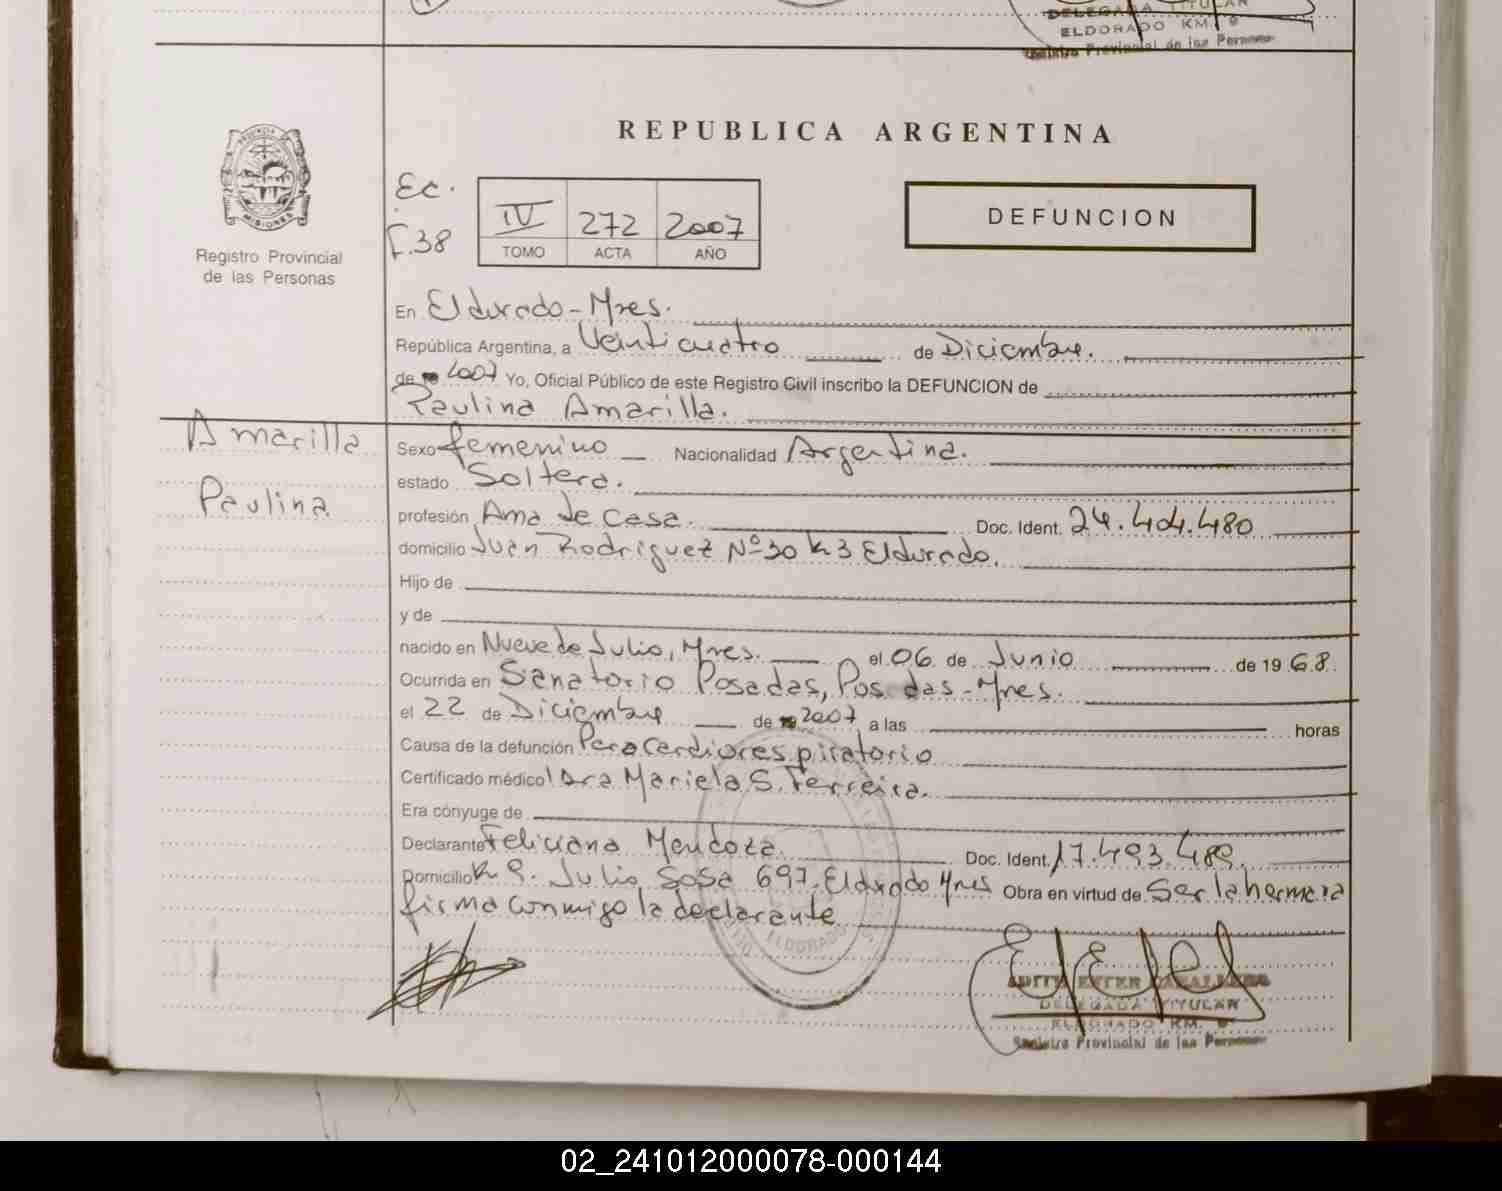 DELEGADA TITULAR
ELDORADO KM. 9
Registro Provincial de las Personas
PROVINCIA DE
MISIONES
Registro Provincial
de las Personas
REPUBLICA ARGENTINA
Ec.
F.38
IV 272 2007
TOMO ACTA AÑO
DEFUNCION
En Eldorado - Mnes.
República Argentina, a Veinticuatro de Diciembre.
de 2007 Yo, Oficial Público de este Registro Civil inscribo la DEFUNCION de
Paulina Amarilla.
Amarilla
Paulina
Sexo femenino Nacionalidad Argentina.
estado Soltera.
profesión Ama de Casa. Doc. Ident. 24.404.480
domicilio Juan Rodriguez Nº 30 k3 Eldorado.
Hijo de
y de
nacido en Nueve de Julio, Mnes. el 06 de Junio de 1968.
Ocurrida en Sanatorio Posadas, Posadas - Mnes.
el 22 de Diciembre de 2007 a las horas
Causa de la defunción Paro Cardiorespiratorio
Certificado médico Dra Mariela S. Ferreira.
Era cónyuge de
Declarante Feliciana Mendoza Doc. Ident. 17.493.489.
Domicilio K 9. Julio Sosa 697. Eldorado Mnes Obra en virtud de Ser la hermana
firma conmigo la declarante
ELDORADO
DELEGADA TITULAR
ELDORADO KM. 9
Registro Provincial de las Personas
02_241012000078-000144